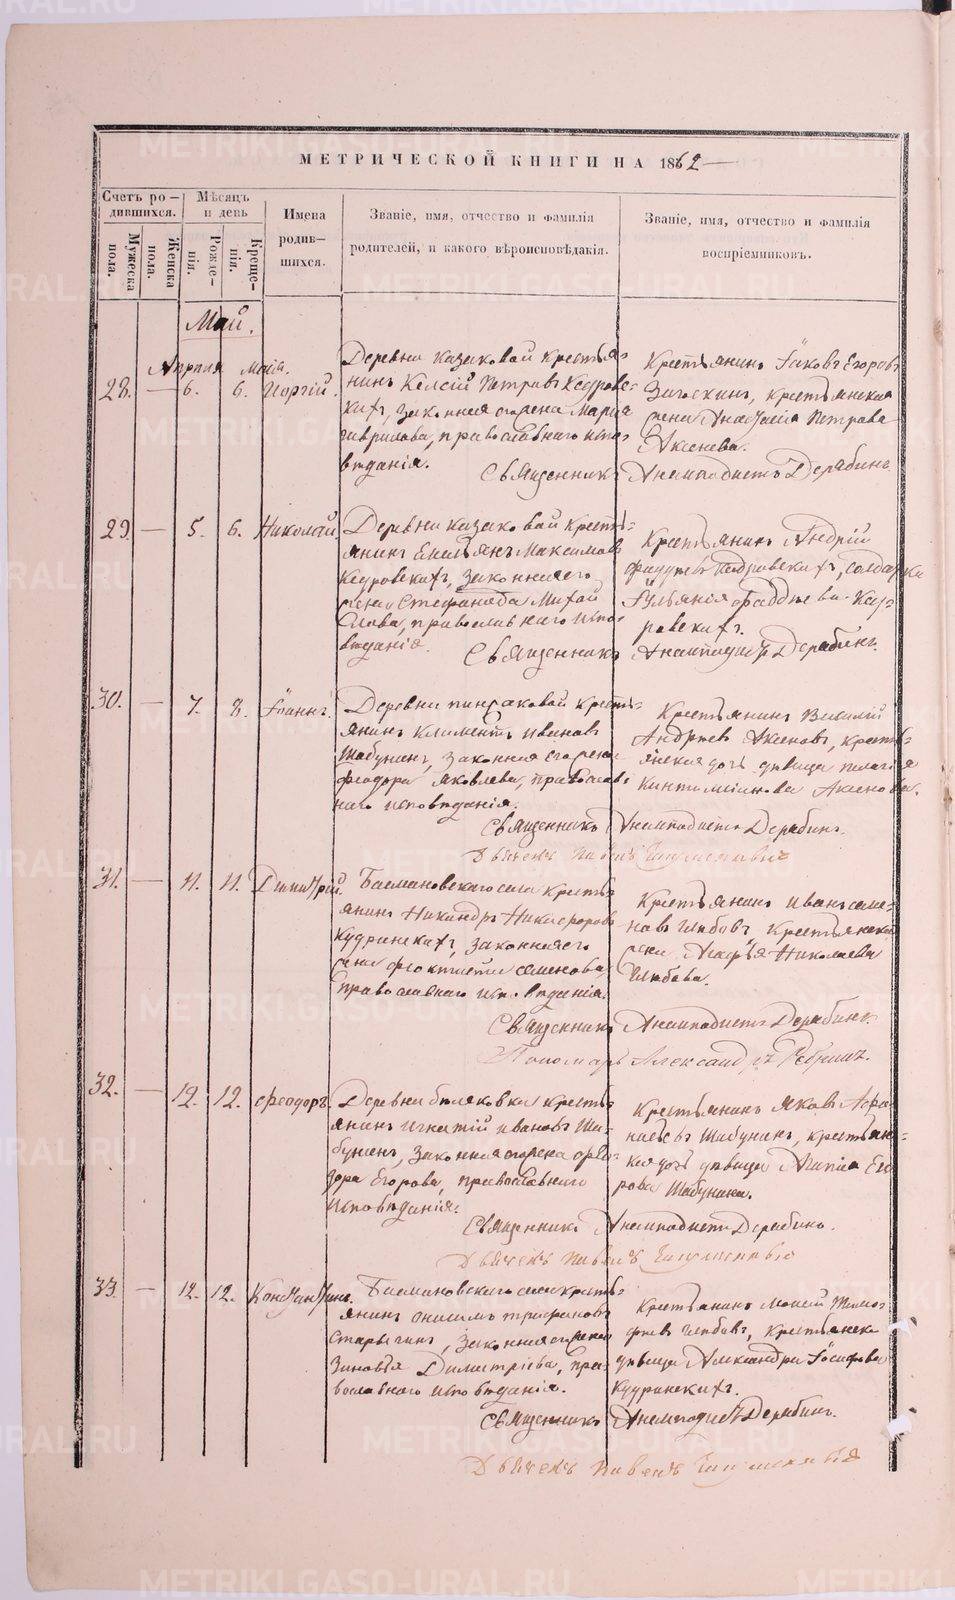 МЕТРИЧЕСКОЙ КНИГИ НА 1862
Счетъ ро-
дившихся.
Мѣсяцъ
и день
Имена
родив-
шихся.
Званіе, имя, отчество и фамилія
родителей, и какого вѣроисповѣданія.
Званіе, имя, отчество и фамилія
воспріемниковъ.
Мужеска
пола.
Женска
пола.
Рожде-
нія.
Креще-
нія.
Май.
Апрѣля Маія.
28. — 6. 6. Георгій.
Деревни Казаковой крестья-
нинъ Петровъ Кедровс-
кихъ, законная жена Марія
Гаврилова, православнаго испо-
вѣданія.
Крестьянинъ Іаковъ Егоровъ
крестьянская
жена Анастасія Петрова
Аксенова.
Священникъ Анемподистъ Дерябинъ.
29. — 5. 6. Николай
Деревни Казаковой кресть-
янинъ Емельянъ Максимовъ
Кедровскихъ, законная его
жена Стефанида Михай
лова, православнаго испо-
вѣданія.
Крестьянинъ Андрей
Фаддеевъ Кедровскихъ, солдатка
Іульянія Фаддѣева Кед-
ровскихъ.
Священникъ Анемподистъ Дерябинъ.
30. — 7. 8. Іоаннъ.
Деревни кресть-
янинъ Климентъ Ивановъ
Шабунинъ, законная его жена
Феодора Яковлева, православ-
наго исповѣданія.
Крестьянинъ Василій
Андреевъ Аксеновъ, кресть-
янская дочь дѣвица Пелагія
Аксенова.
Священникъ Анемподистъ Дерябинъ.
Дьячекъ Павелъ
31. — 11. 11. Димитрій.
Басмановскаго села кресть-
янинъ Никандръ Никифоровъ
Кудринскихъ, законная его
жена Феоктиста Семенова
православнаго исповѣданія.
Крестьянинъ Иванъ Семе-
новъ Глѣбовъ, крестьянская
жена Марѳа Николаева
Глѣбова.
Священникъ Анемподистъ Дерябинъ.
Пономарь Александръ
32. — 12. 12. Феодоръ.
Деревни Беляковки кресть-
янинъ Игнатій Ивановъ Ша-
бунинъ, законная жена Фео-
дора Егорова, православнаго
исповѣданія.
Крестьянинъ Яковъ Афа-
насьевъ Шабунинъ, крестьянс-
кая дочь дѣвица Его
рова Шабунина.
Священникъ Анемподистъ Дерябинъ.
Дьячекъ Павелъ
33. — 12. 12. Константинъ.
Басмановскаго села кресть-
янинъ Онисимъ Трифоновъ
Старыгинъ, законная его жена
Зиновья Димитріева, пра-
вославнаго исповѣданія.
Крестьянинъ Моисей Тимо-
феевъ Глѣбовъ, крестьянская
дѣвица Александра Іосифова
Кудринскихъ.
Священникъ Анемподистъ Дерябинъ.
Дьячекъ Павелъ
METRIKI.GASO-URAL.RU